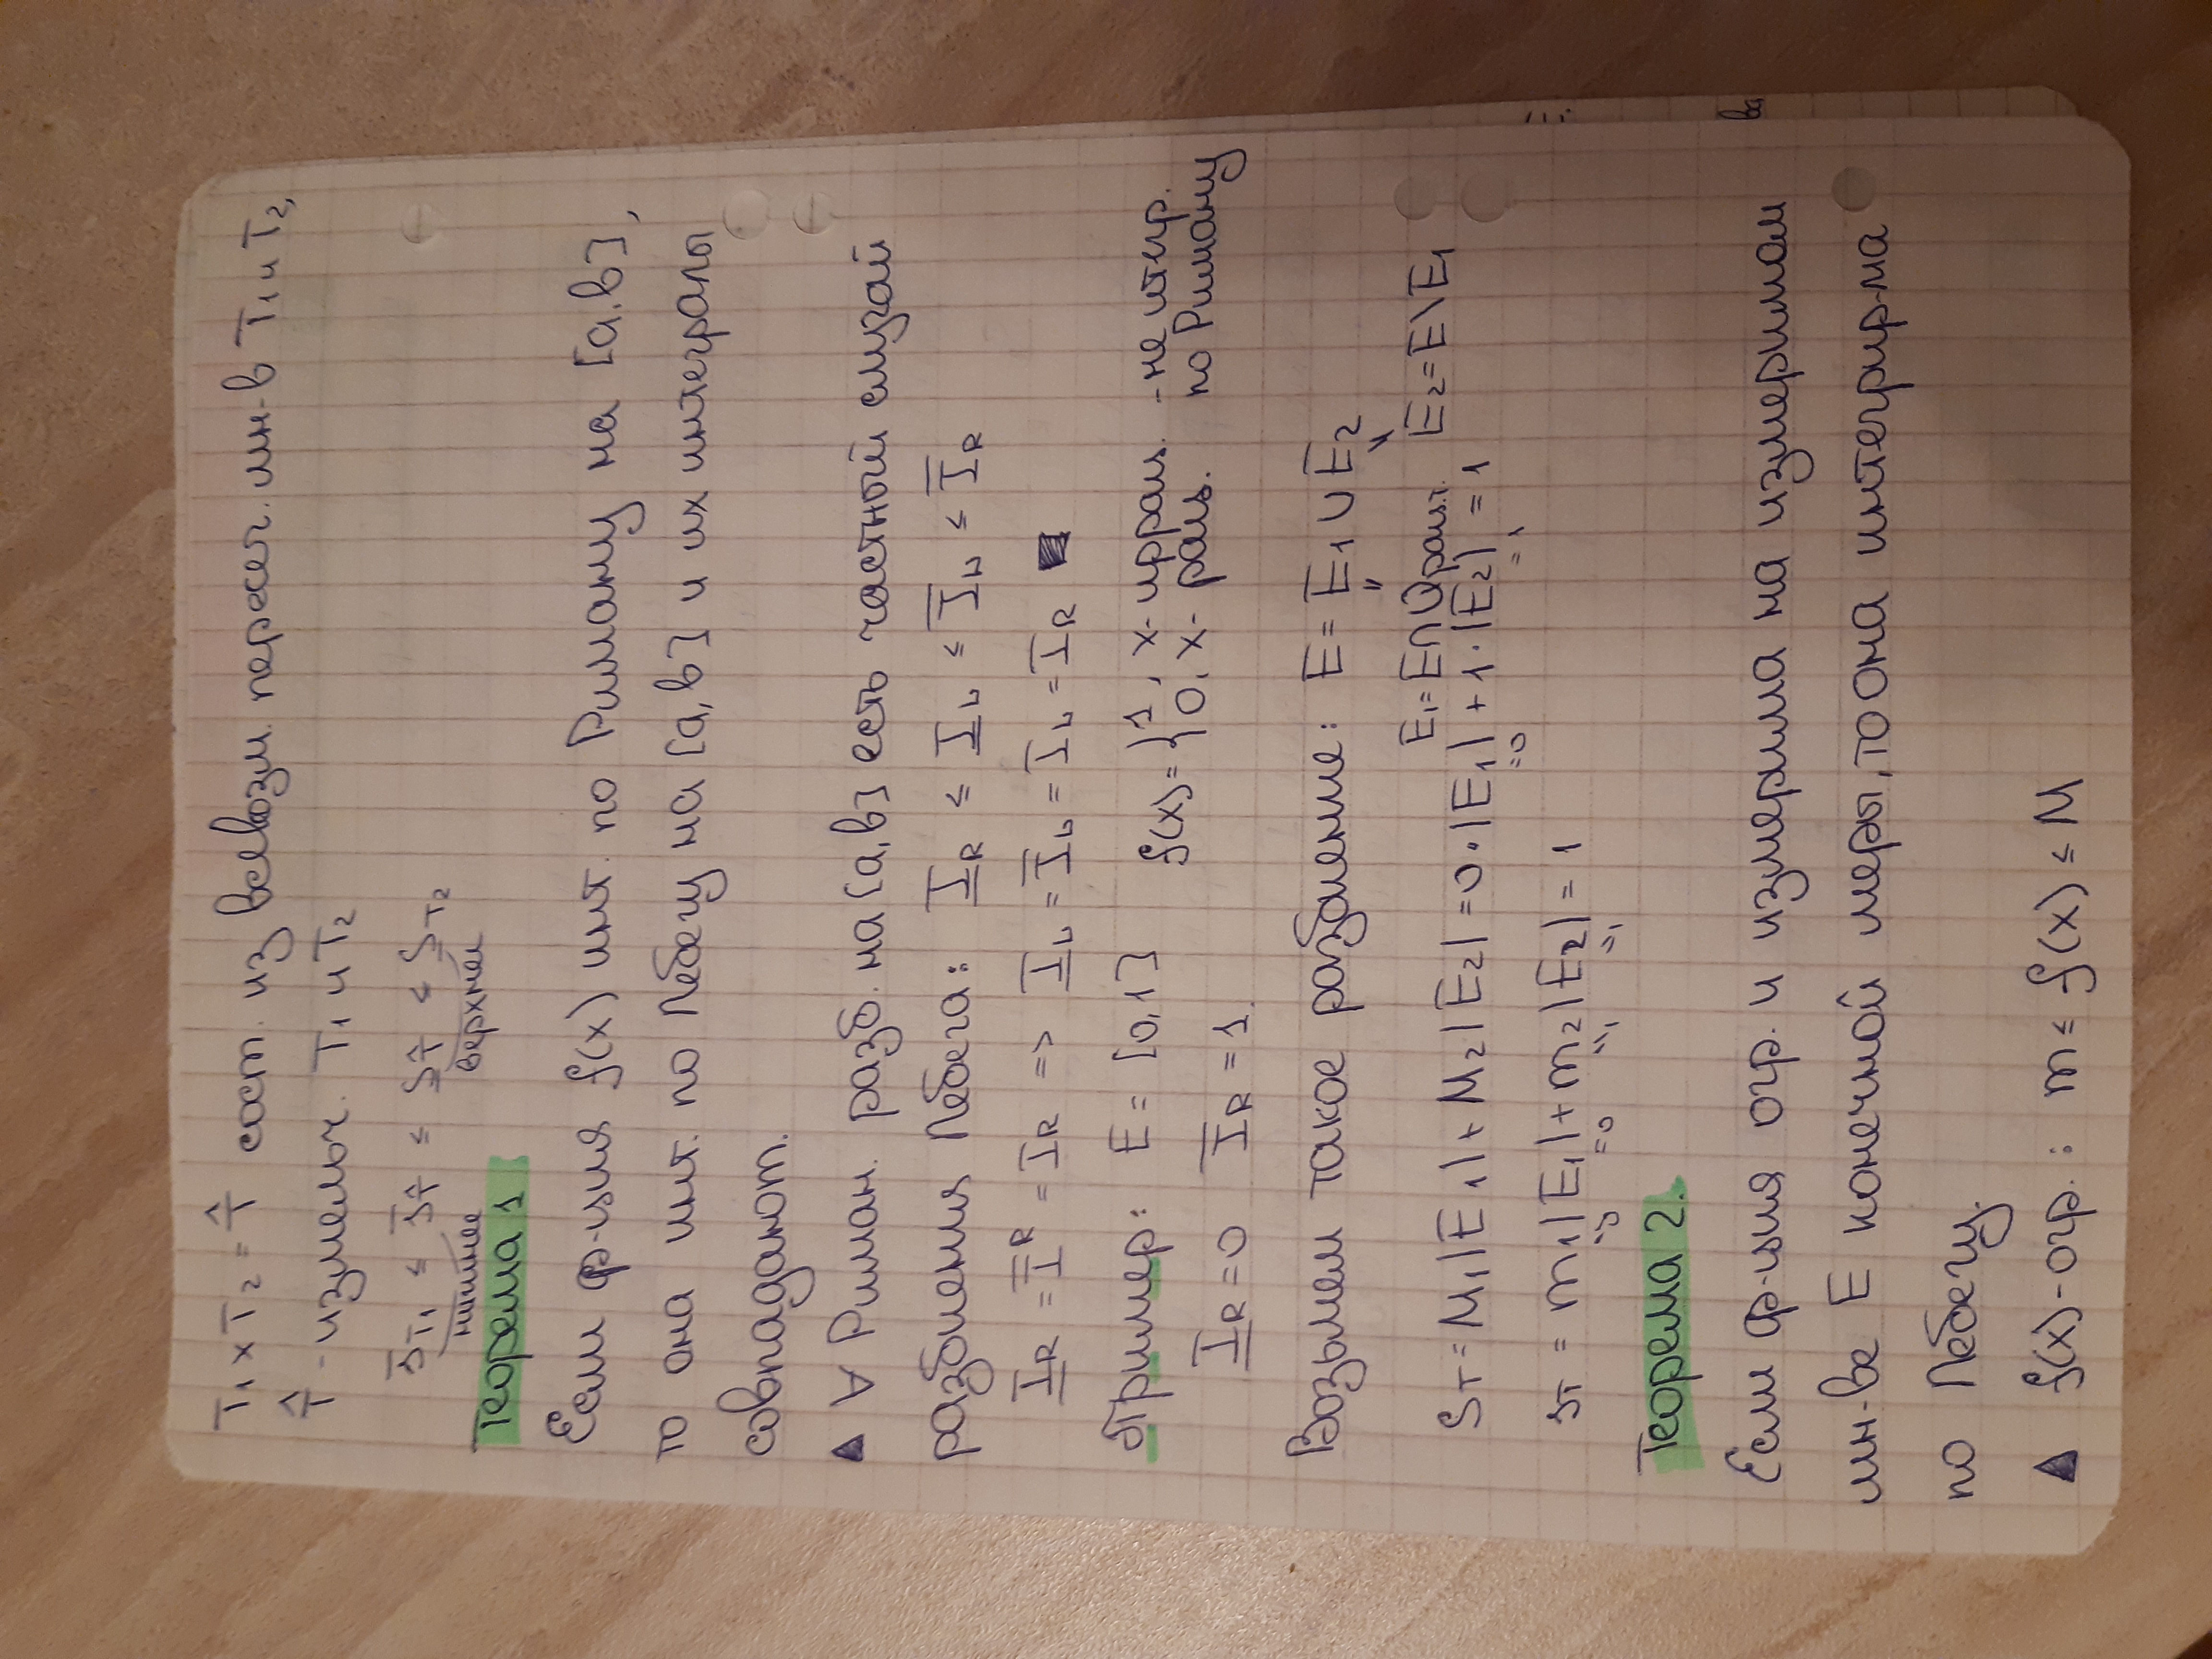 T₁ × T₂ = T̂ сост. из всевозм. пересеч. мн-в T₁ и T₂,
T̂ - измельч. T₁ и T₂
s_T₁ ≤ s_T̂ ≤ S_T̂ ≤ S_T₂
нижнее верхнее
Теорема 1
Если ф-ция f(x) инт. по Риману на [a,b],
то она инт. по Лебегу на [a,b] и их интегралы
совпадают.
▲ ∀ Риман. разб. на [a,b] есть частный случай
разбиения Лебега: I̲_R ≤ I̲_L ≤ I̅_L ≤ I̅_R
I̲_R = I̅_R = I_R => I̲_L = I̅_L = I_L = I_R ■
Пример: E = [0,1] f(x) = { 1, x - иррац. - не интегр.
0, x - рац. по Риману
I̲_R = 0 I̅_R = 1.
Возьмем такое разбиение: E = E₁ ∪ E₂
E₁ = E∩Qрацт. E₂ = E\E₁
S_T = M₁|E₁| + M₂|E₂| = 0·|E₁| + 1·|E₂| = 1
=0 =1
s_T = m₁|E₁| + m₂|E₂| = 1
=0 =0 =1 =1
Теорема 2.
Если ф-ция огр. и измерима на измеримом
мн-ве E конечной меры, то она интегрир-ма
по Лебегу.
▲ f(x) - огр. : m ≤ f(x) ≤ M
ва